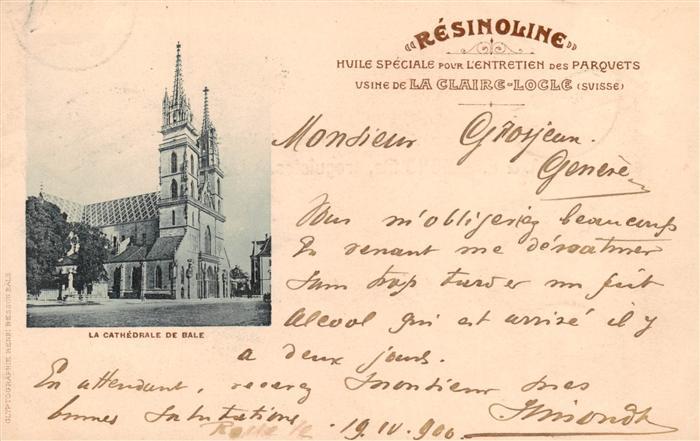 RÉSINOLINE
HUILE SPÉCIALE POUR L'ENTRETIEN DES PARQUETS
USINE DE LA CLAIRE-LOCLE (SUISSE)
Monsieur Grosjean.
Genève
Vous m'obligeriez beaucoup
En venant me
sans trop tarder un fût
alcool qui est arrivé il y
a deux jours.
En attendant, recevez Monsieur mes
bonnes Salutations
19.IV.900
LA CATHÉDRALE DE BALE
GLYPTOGRAPHIE HENRI BESSON BÂLE